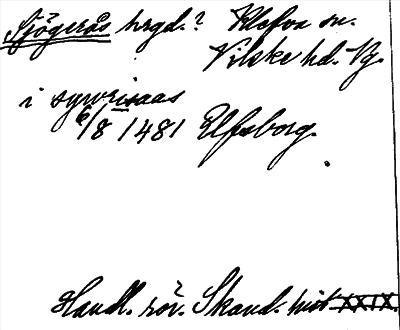 Sjögerås hrgd.? Klefva sn.
Vilske hd. Vg.
i sywrisaas
6/8 1481 Elfsborg.
Handl. rör. Skand. hist. XXIX.